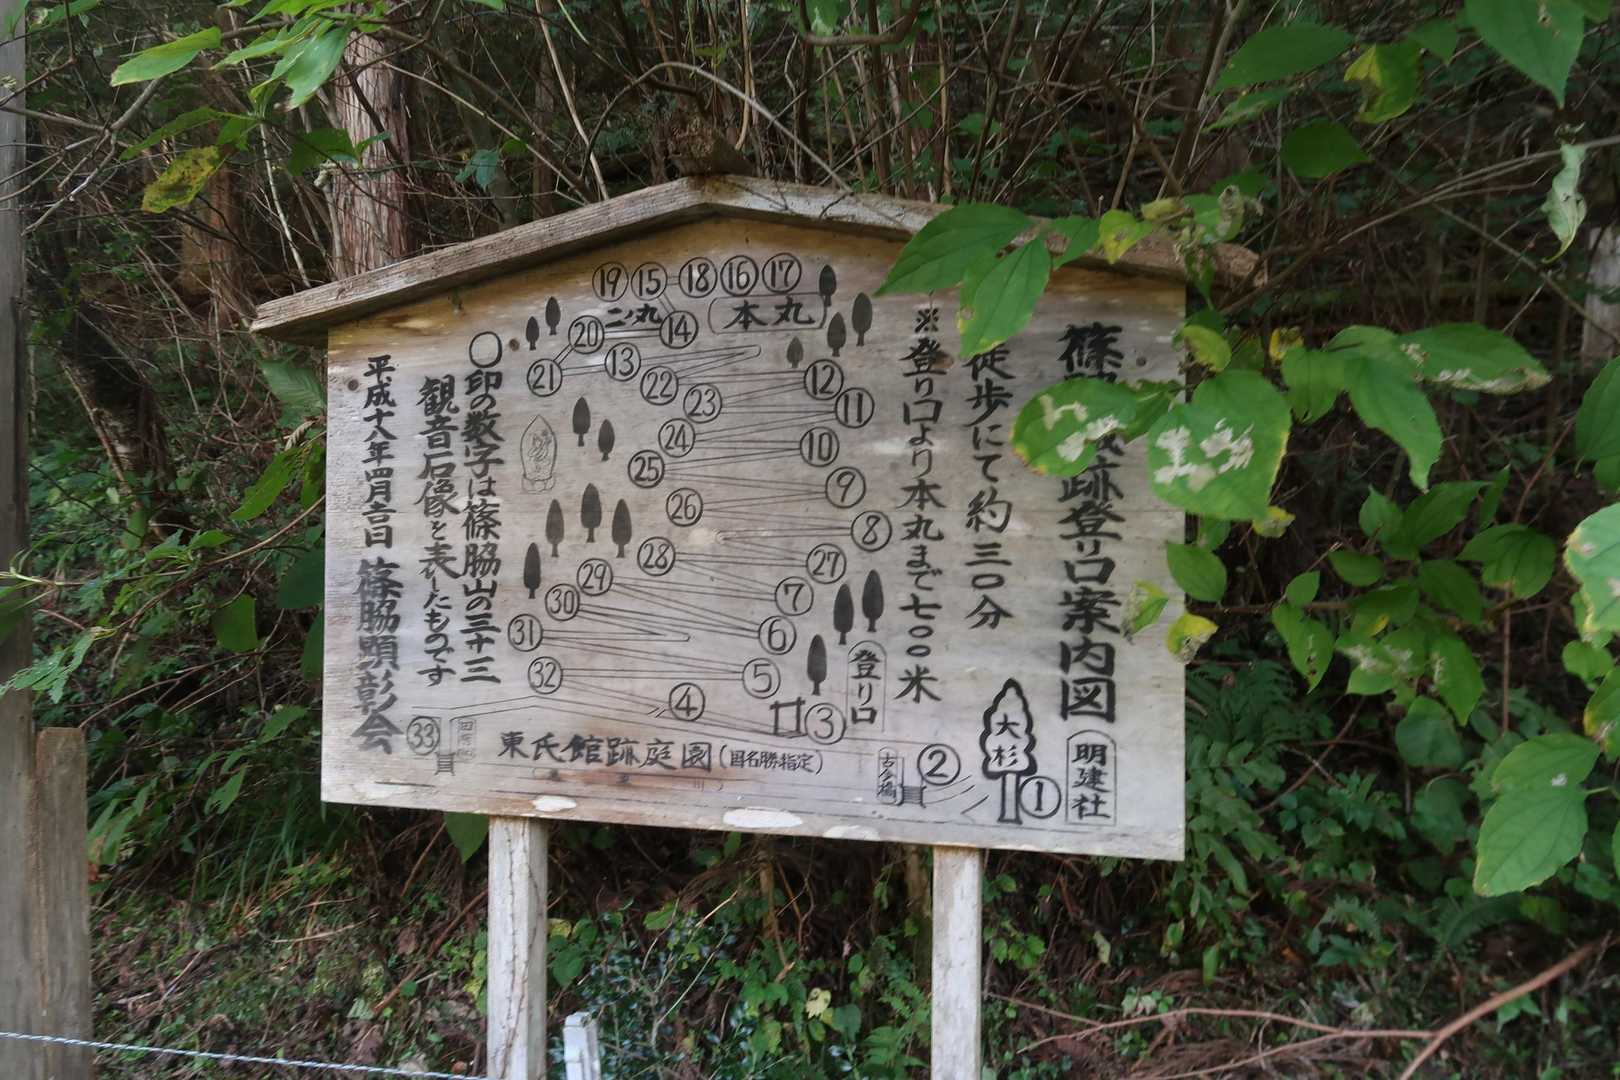 篠跡登り口案内図
徒歩にて約三〇分
※登り口より本丸まで七〇〇米
⑲⑮⑱⑯⑰
二ノ丸
本丸
⑳
⑭
㉑
⑬
㉒
⑫
㉓
⑪
㉔
⑩
㉕
⑨
㉖
⑧
㉘
㉗
㉙
⑦
㉚
㉛
⑥
㉜
⑤
④
③
登り口
②
大杉
①
明建社
古今橋
㉝
東氏館跡庭園(国名勝指定)
〇印の数字は篠脇山の三十三
観音石像を表したものです
平成十八年四月吉日 篠脇顕彰会